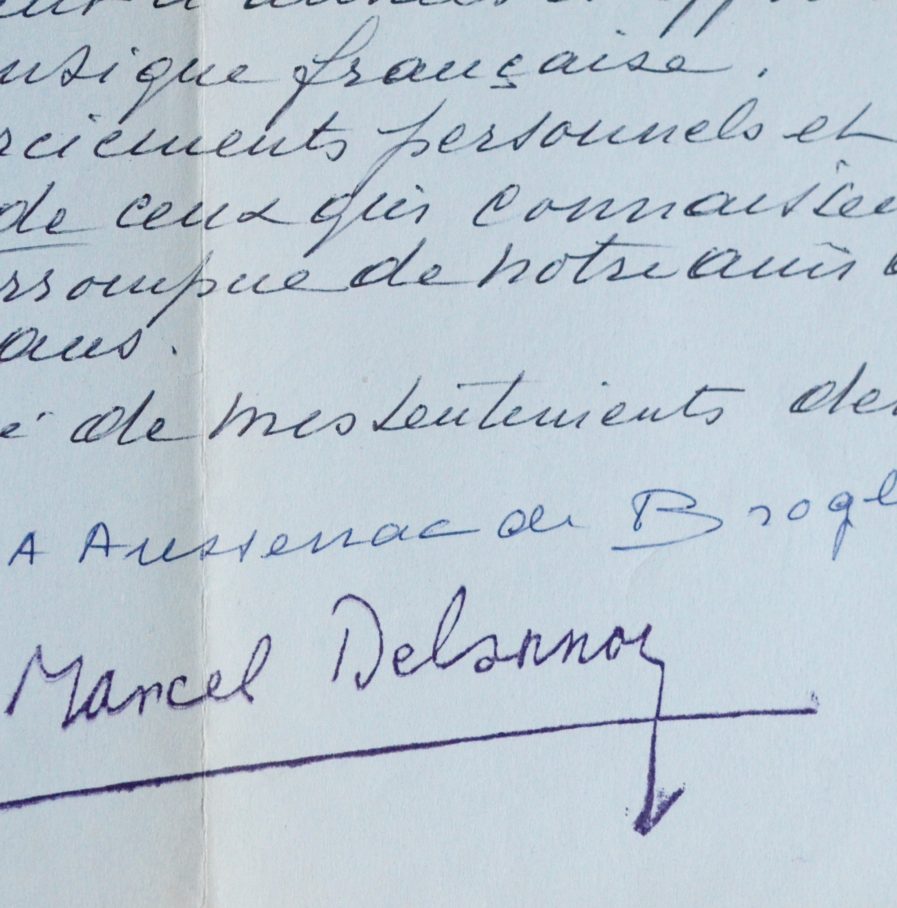 usique française.
rciements personnels et
de ceux qui connaissen
rrompue de notre ami
ans.
é de mes sentiments de
A Aussenac de Brogl
Marcel Delannoy